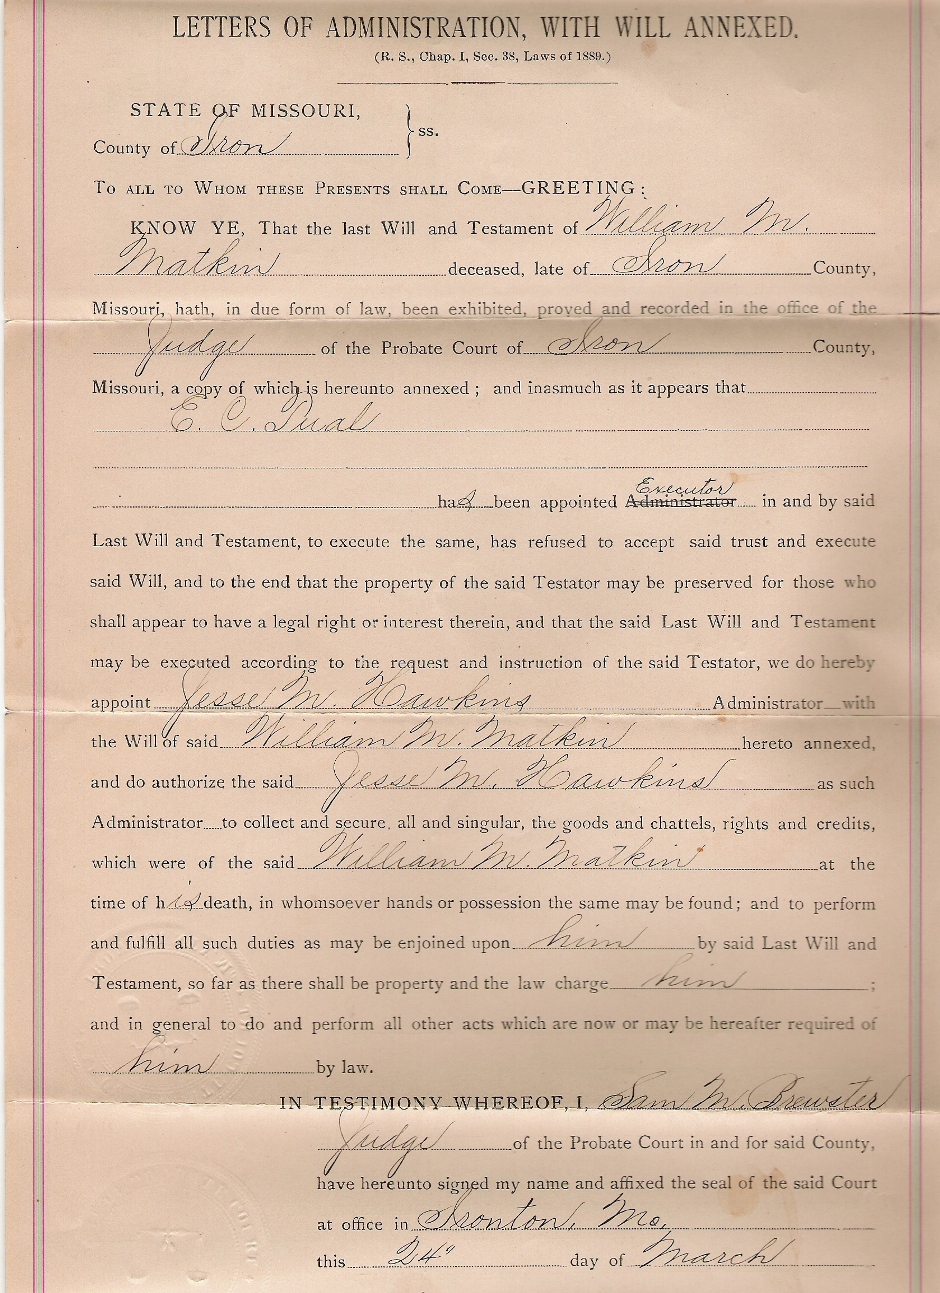 LETTERS OF ADMINISTRATION, WITH WILL ANNEXED.
(R. S., Chap. I, Sec. 38, Laws of 1889.)
STATE OF MISSOURI,
County of Iron } ss.
TO ALL TO WHOM THESE PRESENTS SHALL COME—GREETING:
KNOW YE, That the last Will and Testament of William M.
Matkin deceased, late of Iron County,
Missouri, hath, in due form of law, been exhibited, proved and recorded in the office of the
Judge of the Probate Court of Iron County,
Missouri, a copy of which is hereunto annexed; and inasmuch as it appears that
E. C. Dual
Executor
has been appointed Administrator in and by said
Last Will and Testament, to execute the same, has refused to accept said trust and execute
said Will, and to the end that the property of the said Testator may be preserved for those who
shall appear to have a legal right or interest therein, and that the said Last Will and Testament
may be executed according to the request and instruction of the said Testator, we do hereby
appoint Jesse M. Hawkins Administrator with
the Will of said William M. Matkin hereto annexed,
and do authorize the said Jesse M. Hawkins as such
Administrator to collect and secure, all and singular, the goods and chattels, rights and credits,
which were of the said William M. Matkin at the
time of his death, in whomsoever hands or possession the same may be found; and to perform
and fulfill all such duties as may be enjoined upon him by said Last Will and
Testament, so far as there shall be property and the law charge him ;
and in general to do and perform all other acts which are now or may be hereafter required of
him by law.
IN TESTIMONY WHEREOF, I, Sam M. Brewster
Judge of the Probate Court in and for said County,
have hereunto signed my name and affixed the seal of the said Court
at office in Ironton, Mo.
this 24" day of March